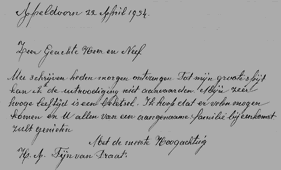 Apeldoorn 22 April 1934.
Zeer Geachte Heer en Neef
Uw schrijven heden morgen ontvangen Tot mijn groote spijt
kan ik de uitnoodiging niet aanvaarden Mijn zeer
hooge leeftijd is een beletsel. Ik hoop dat er velen mogen
komen en U allen van een aangename familie bijeenkomst
zult genieten
Met de meeste Hoogachting
H. A. Fijn van Draat.